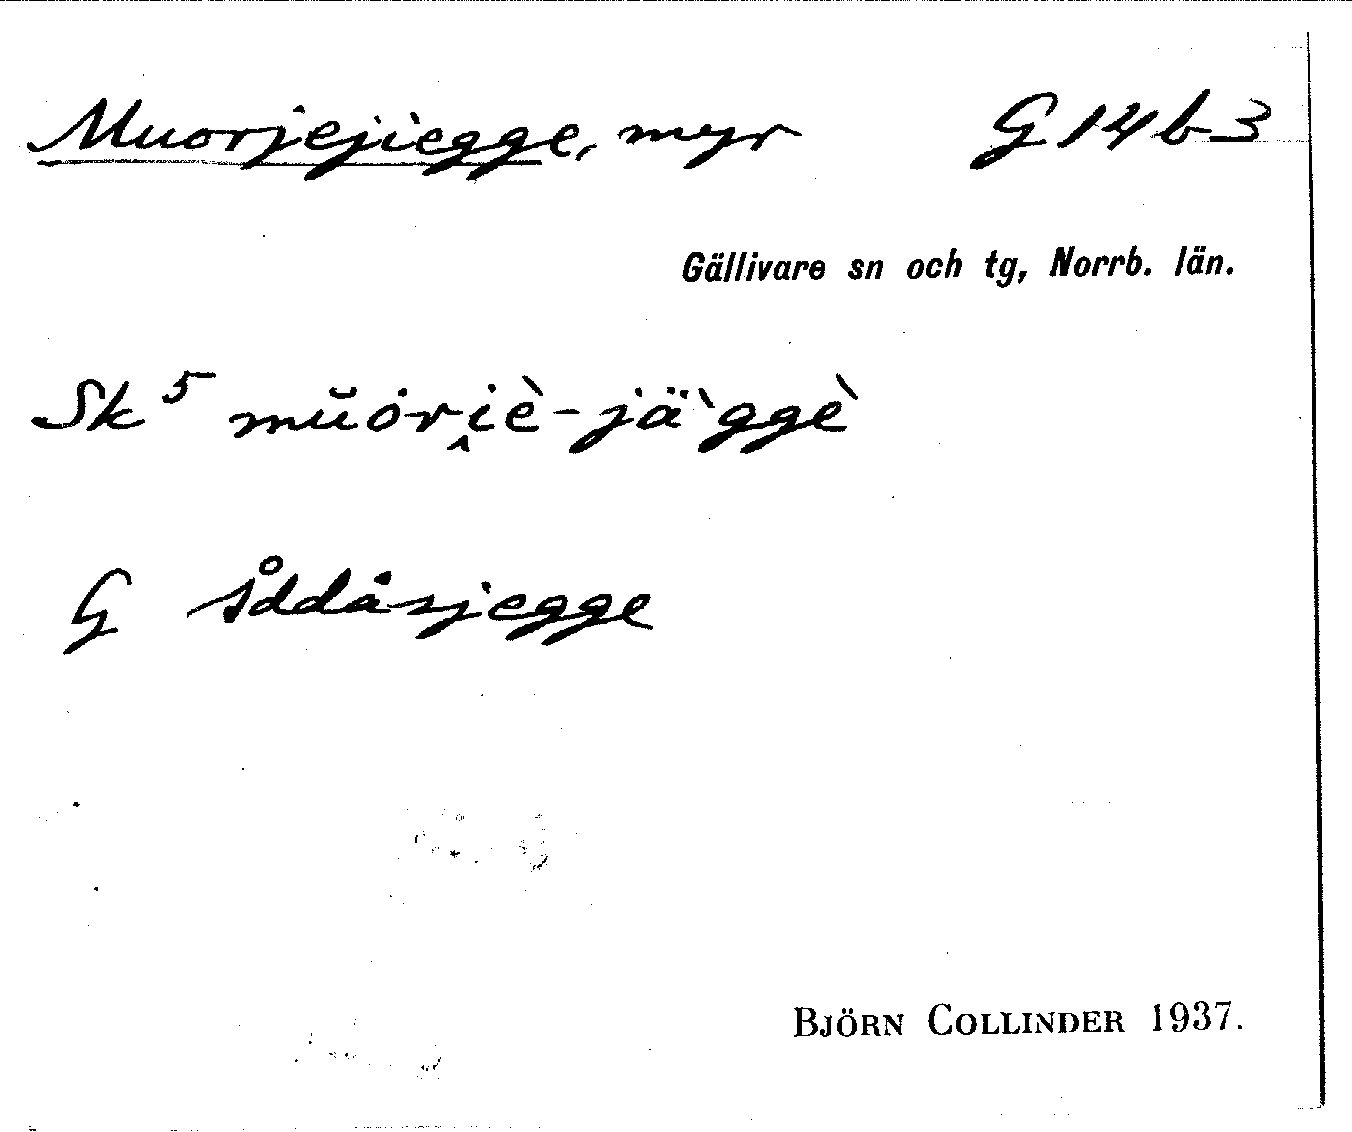 Muorjejiegge, myr G 14 b 3
Gällivare sn och tg, Norrb. län.
Sk 5 mŭȯri̭è-jä`ggè
G åddåsjegge
BJÖRN COLLINDER 1937.